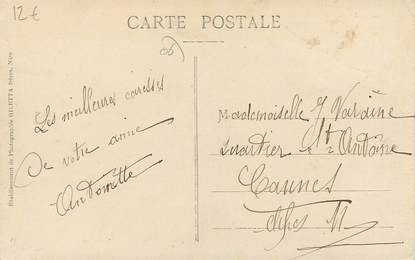 12€
CARTE POSTALE
06
Les meilleures caresses
De votre amie
Antoinette
Mademoiselle J Varaine
Quartier St Antoine
Cannes
Alpes M
Etablissement de Photographie GILETTA frères, Nice